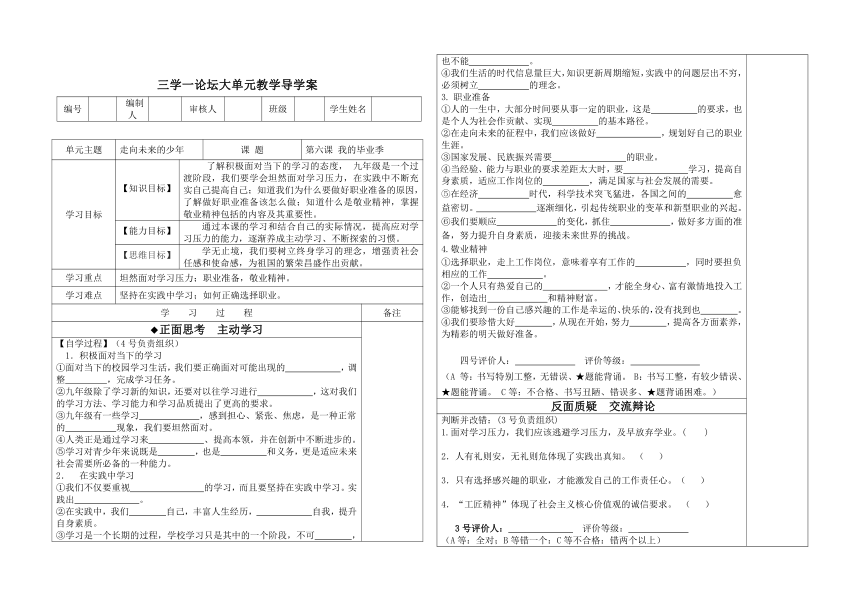 三学一论坛大单元教学导学案
编号 编制人 审核人 班级 学生姓名
单元主题 走向未来的少年 课 题 第六课 我的毕业季
学习目标
【知识目标】
了解积极面对当下的学习的态度， 九年级是一个过
渡阶段，我们要学会坦然面对学习压力，在实践中不断充
实自己提高自己；知道我们为什么要做好职业准备的原因，
了解做好职业准备该怎么做；知道什么是敬业精神，掌握
敬业精神包括的内容及其重要性。
【能力目标】
通过本课的学习和结合自己的实际情况，提高应对学
习压力的能力，逐渐养成主动学习、不断探索的习惯。
【思维目标】
学无止境，我们要树立终身学习的理念，增强责社会
任感和使命感，为祖国的繁荣昌盛作出贡献。
学习重点 坦然面对学习压力；职业准备，敬业精神。
学习难点 坚持在实践中学习；如何正确选择职业。
学 习 过 程 备注
◆正面思考 主动学习
【自学过程】(4 号负责组织）
1．积极面对当下的学习
①面对当下的校园学习生活，我们要正确面对可能出现的____________，调
整_________，完成学习任务。
②九年级除了学习新的知识，还要对以往学习进行____________，这对我们
的学习方法、学习能力和学习品质提出了更高的要求。
③九年级有一些学习____________，感到担心、紧张、焦虑，是一种正常
的___________现象，我们要坦然面对。
④人类正是通过学习来____________、提高本领，并在创新中不断进步的。
⑤学习对青少年来说既是________，也是__________和义务，更是适应未来
社会需要所必备的一种能力。
2． 在实践中学习
①我们不仅要重视________________的学习，而且要坚持在实践中学习。实
践出______________。
②在实践中，我们________自己，丰富人生经历，____________自我，提升
自身素质。
③学习是一个长期的过程，学校学习只是其中的一个阶段。不可________，
也不能_____________。
④我们生活的时代信息量巨大，知识更新周期缩短，实践中的问题层出不穷，
必须树立___________的理念。
3．职业准备
①人的一生中，大部分时间要从事一定的职业，这是__________的要求，也
是个人为社会作贡献、实现__________的基本路径。
②在走向未来的征程中，我们应该做好______________，规划好自己的职业
生涯。
③国家发展、民族振兴需要________________的职业。
④当经验、能力与职业的要求差距太大时，要_____________学习，提高自
身素质，适应工作岗位的__________，满足国家与社会发展的需要。
⑤在经济___________时代，科学技术突飞猛进，各国之间的__________愈
益密切。_____________逐渐细化，引起传统职业的变革和新型职业的兴起。
⑥我们要顺应____________的变化，抓住_____________，做好多方面的准
备，努力提升自身素质，迎接未来世界的挑战。
4.敬业精神
①选择职业，走上工作岗位，意味着享有工作的___________，同时要担负
相应的工作____________。
②一个人只有热爱自己的______________，才能全身心、富有激情地投入工
作，创造出_____________和精神财富。
③能够找到一份自己感兴趣的工作是幸运的、快乐的，没有找到也________。
④我们要珍惜大好________，从现在开始，努力________，提高各方面素养，
为精彩的明天做好准备。
四号评价人：_____________ 评价等级：_______________
（A 等：书写特别工整，无错误、★题能背诵。 B：书写工整，有较少错误、
★题能背诵。 C 等；不合格、书写丑陋、错误多、★题背诵困难。）
反面质疑 交流辩论
判断并改错：(3 号负责组织)
1.面对学习压力，我们应该逃避学习压力，及早放弃学业。（ ）
2．人有礼则安，无礼则危体现了实践出真知。 （ ）
3．只有选择感兴趣的职业，才能激发自己的工作责任心。（ ）
4．“工匠精神”体现了社会主义核心价值观的诚信要求。 （ ）
3 号评价人：______________ 评价等级：_____________
（A 等：全对；B 等错一个；C 等不合格：错两个以上）